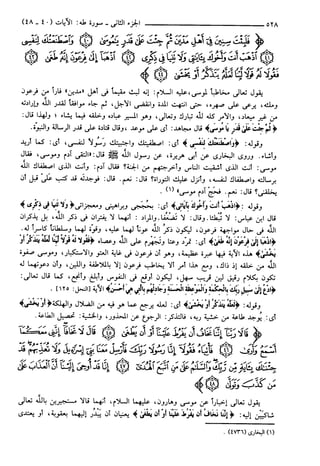 ٥٢٨ الجزء الثانى - سورة طه: الآيات (٤٠ - ٤٨)
فَلَبِثْتَ سِنِينَ فِي أَهْلِ مَدْيَنَ ثُمَّ جِئْتَ عَلَىٰ قَدَرٍ يَا مُوسَىٰ ﴿٤٠﴾ وَاصْطَنَعْتُكَ لِنَفْسِي
﴿٤١﴾ اذْهَبْ أَنْتَ وَأَخُوكَ بِآيَاتِي وَلَا تَنِيَا فِي ذِكْرِي ﴿٤٢﴾ اذْهَبَا إِلَىٰ فِرْعَوْنَ إِنَّهُ طَغَىٰ ﴿٤٣﴾
فَقُولَا لَهُ قَوْلًا لَيِّنًا لَعَلَّهُ يَتَذَكَّرُ أَوْ يَخْشَىٰ ﴿٤٤﴾
يقول تعالى مخاطباً لموسى، عليه السلام: إنه لبث مقيماً فى أهل «مدين» فاراً من فرعون
وملئه، يرعى على صهره، حتى انتهت المدة وانقضى الأجل، ثم جاء موافقاً لقدر الله وإرادته
من غير ميعاد، والأمر كله لله تبارك وتعالى، وهو المسير عباده وخلقه فيما يشاء، ولهذا قال:
﴿ثُمَّ جِئْتَ عَلَىٰ قَدَرٍ يَا مُوسَىٰ﴾ قال مجاهد: أى على موعد، وقال قتادة على قدر الرسالة والنبوة.
وقوله: ﴿وَاصْطَنَعْتُكَ لِنَفْسِي﴾ أى: اصطفيتك واجتبيتك رسولاً لنفسى، أى: كما أريد
وأشاء. وروى البخارى عن أبى هريرة، عن رسول الله ﷺ قال: «التقى آدم وموسى، فقال
موسى: أنت الذى أشقيت الناس وأخرجتهم من الجنة؟ فقال آدم: وأنت الذى اصطفاك الله
برسالته واصطفاك لنفسه، وأنزل عليك التوراة؟ قال: نعم. قال: فوجدته قد كتب علىّ قبل أن
يخلقنى؟ قال: نعم. فحج آدم موسى» (١).
﴿اذْهَبْ أَنْتَ وَأَخُوكَ بِآيَاتِي﴾ أى: بحججى وبراهينى ومعجزاتى ﴿وَلَا تَنِيَا فِي ذِكْرِي﴾
قال ابن عباس: لا تبطئا. وقال: لا تضعفا. والمراد: أنهما لا يفتران فى ذكر الله، بل يذكران
الله فى حال مواجهة فرعون، ليكون ذكر الله عوناً لهما عليه، وقوة لهما وسلطاناً كاسراً له.
﴿اذْهَبَا إِلَىٰ فِرْعَوْنَ إِنَّهُ طَغَىٰ﴾ أى: تمرد وعتا وتجهرم على الله وعصاه ﴿فَقُولَا لَهُ قَوْلًا لَيِّنًا لَعَلَّهُ يَتَذَكَّرُ أَوْ
يَخْشَىٰ﴾ هذه الآية فيها عبرة عظيمة، وهو أن فرعون فى غاية العتو والاستكبار، وموسى صفوة
الله من خلقه إذ ذاك، ومع هذا أمر ألا يخاطب فرعون إلا بالملاطفة واللين، وأن دعوتهما له
تكون بكلام رقيق لين قريب سهل، ليكون أوقع فى النفوس وأبلغ وأنجع، كما قال تعالى:
﴿ادْعُ إِلَىٰ سَبِيلِ رَبِّكَ بِالْحِكْمَةِ وَالْمَوْعِظَةِ الْحَسَنَةِ وَجَادِلْهُمْ بِالَّتِي هِيَ أَحْسَنُ﴾ الآية [النحل: ١٢٥].
وقوله: ﴿لَعَلَّهُ يَتَذَكَّرُ أَوْ يَخْشَىٰ﴾ أى: لعله يرجع عما هو فيه من الضلال والهلكة ﴿أَوْ يَخْشَىٰ﴾
أى: يوجد طاعة من خشية ربه، فالتذكر: الرجوع عن المحذور، والخشية: تحصيل الطاعة.
قَالَا رَبَّنَا إِنَّنَا نَخَافُ أَنْ يَفْرُطَ عَلَيْنَا أَوْ أَنْ يَطْغَىٰ ﴿٤٥﴾ قَالَ لَا تَخَافَا إِنَّنِي مَعَكُمَا
أَسْمَعُ وَأَرَىٰ ﴿٤٦﴾ فَأْتِيَاهُ فَقُولَا إِنَّا رَسُولَا رَبِّكَ فَأَرْسِلْ مَعَنَا بَنِي إِسْرَائِيلَ وَلَا تُعَذِّبْهُمْ قَدْ
جِئْنَاكَ بِآيَةٍ مِنْ رَبِّكَ وَالسَّلَامُ عَلَىٰ مَنِ اتَّبَعَ الْهُدَىٰ ﴿٤٧﴾ إِنَّا قَدْ أُوحِيَ إِلَيْنَا أَنَّ الْعَذَابَ عَلَىٰ
مَنْ كَذَّبَ وَتَوَلَّىٰ ﴿٤٨﴾
يقول تعالى إخباراً عن موسى وهارون، عليهما السلام، أنهما قالا مستجيرين بالله تعالى
شاكيين إليه: ﴿إِنَّنَا نَخَافُ أَنْ يَفْرُطَ عَلَيْنَا أَوْ أَنْ يَطْغَىٰ﴾ يعنيان أن يبدر إليهما بعقوبة، أو يعتدى
(١) البخارى (٤٧٣٦).